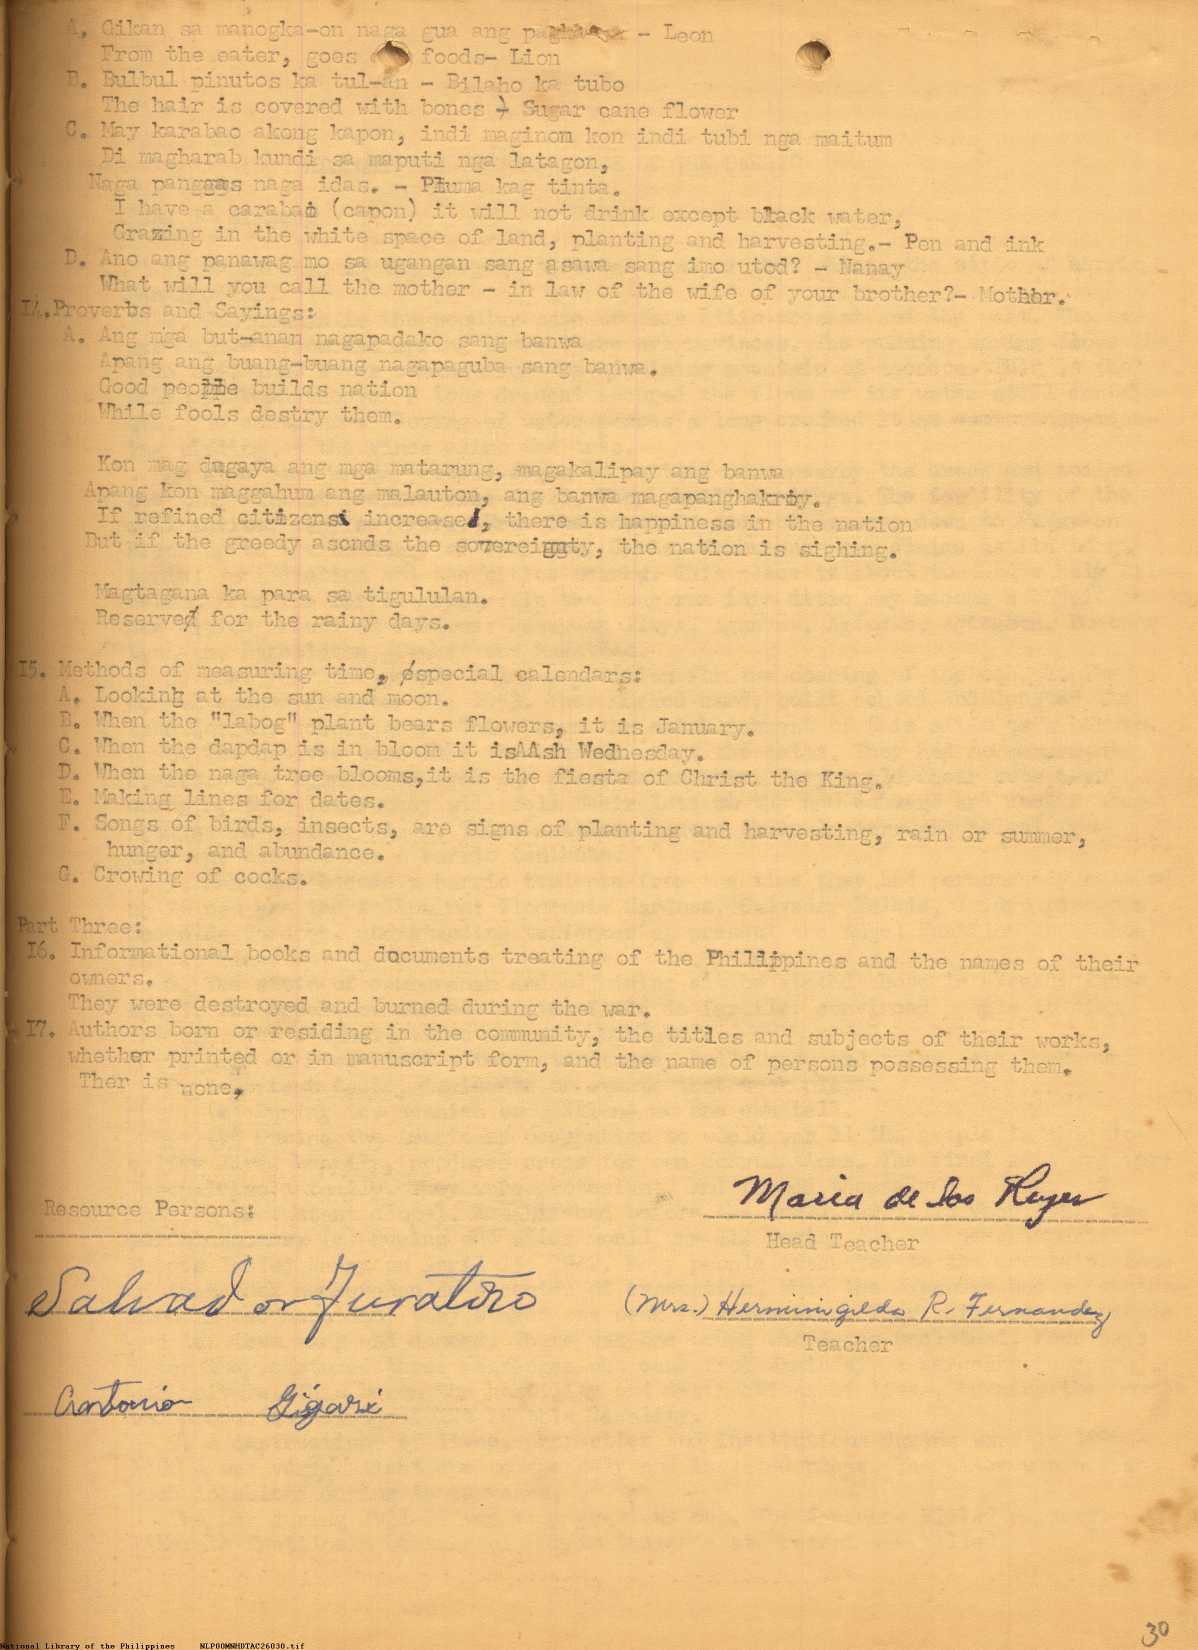 A, Gikan sa manogka-on naga gua ang - Leon
From the eater, goes foods- Lion
B. Bulbul pinutos ka tul-an - Bilaho ka tubo
The hair is covered with bones - Sugar cane flower
C. May karabao akong kapon, indi maginom kon indi tubi nga maitum
Di magharab kundi sa maputi nga latagon,
Naga panggas naga idas. - Pluma kag tinta.
I have a carabao (capon) it will not drink except black water,
Grazing in the white space of land, planting and harvesting.- Pen and ink
D. Ano ang panawag mo sa ugangan sang asawa sang imo utod? - Nanay
What will you call the mother - in law of the wife of your brother?- Mother.
14.Proverbs and Sayings:
A. Ang mga but-anan nagapadako sang banwa
Apang ang buang-buang nagapaguba sang banwa.
Good people builds nation
While fools destry them.
Kon mag dugaya ang mga matarung, magakalipay ang banwa
Apang kon maggahum ang malauton, ang banwa magapanghakroy.
If refined citizens increase, there is happiness in the nation
But if the greedy ascnds the sovereignty, the nation is sighing.
Magtagana ka para sa tigululan.
Reserve for the rainy days.
15. Methods of measuring time, special calendars:
A. Looking at the sun and moon.
B. When the "labog" plant bears flowers, it is January.
C. When the dapdap is in bloom it isAAsh Wednesday.
D. When the naga tree blooms,it is the fiesta of Christ the King.
E. Making lines for dates.
F. Songs of birds, insects, are signs of planting and harvesting, rain or summer,
hunger, and abundance.
G. Crowing of cocks.
Part Three:
16. Informational books and documents treating of the Philippines and the names of their
owners.
They were destroyed and burned during the war.
17. Authors born or residing in the community, the titles and subjects of their works,
whether printed or in manuscript form, and the name of persons possessing them.
Ther is none.
Maria de los Reyes
Resource Persons:
Head Teacher
Salvador Juratiro
(Mrs.) Herminigilda R. Fernandez
Teacher
Antonio Gigari
30
National Library of the Philippines NLP00MNHDTAC26030.tif